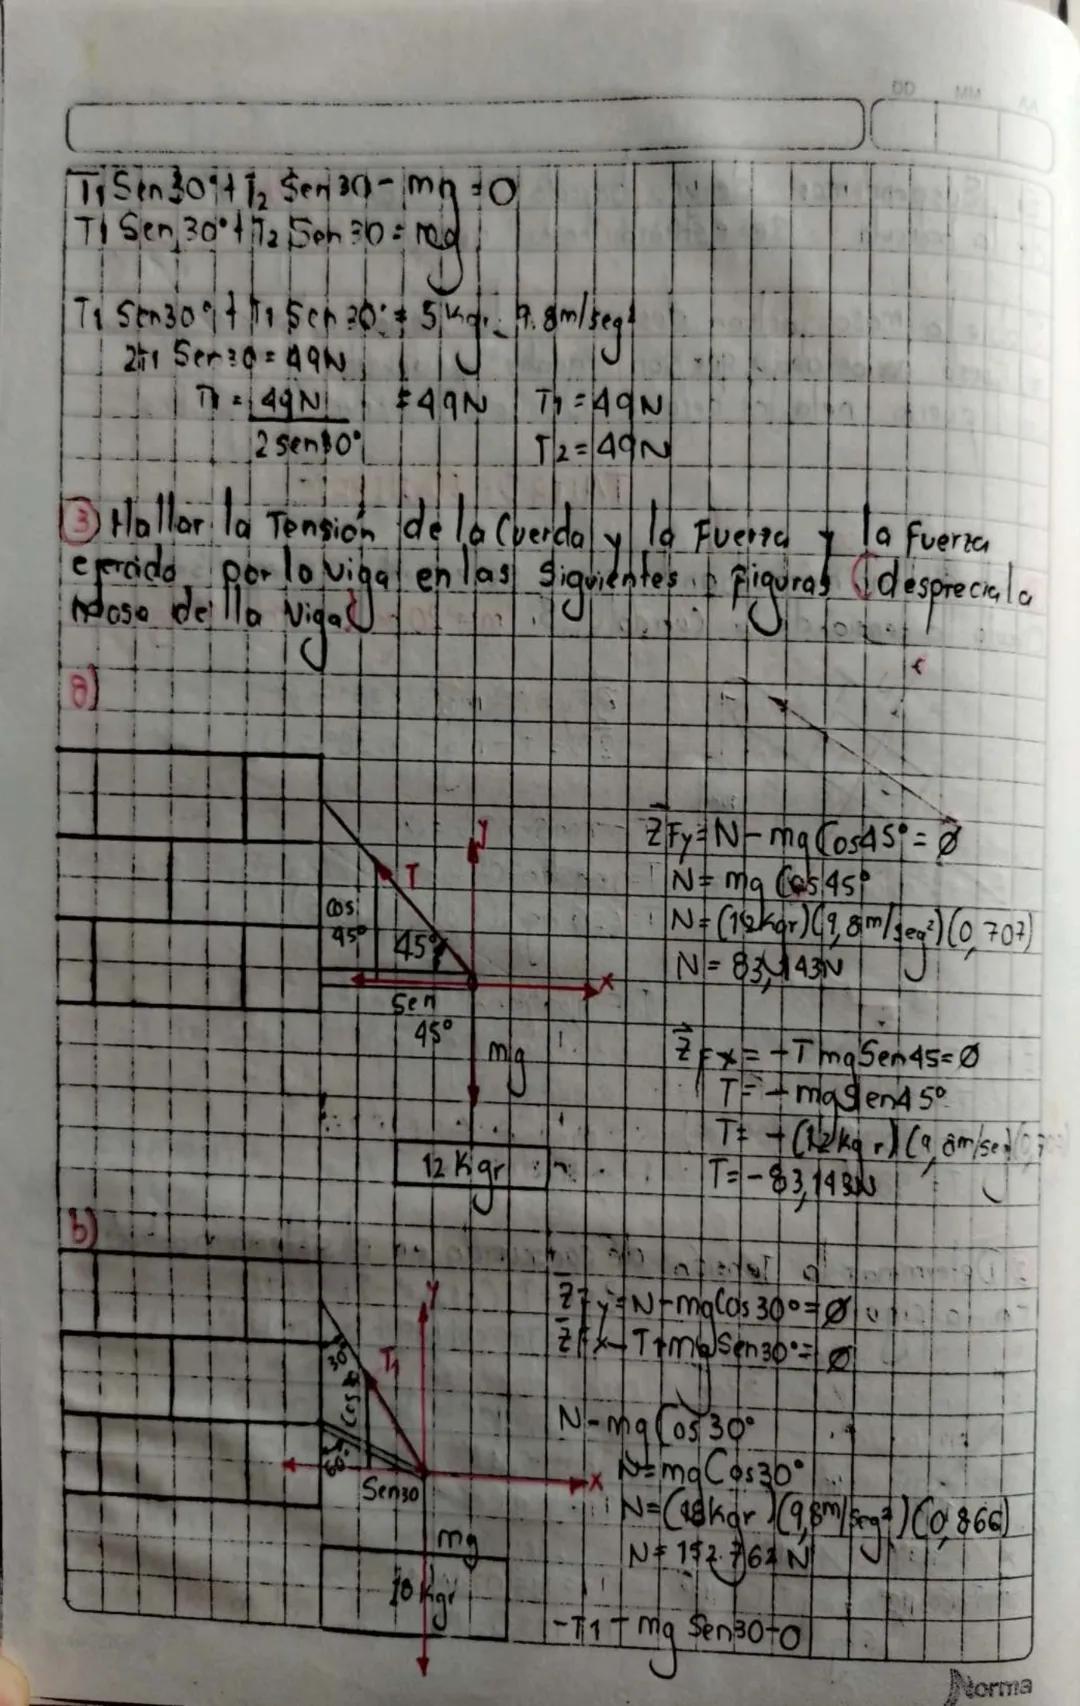 DD MM AA
T1 Sen30°+T2 Sen30-mg=0
T1 Sen30°+T2 Sen30=mg
T1 Sen30°+T1 Sen30°= 5 kgr. 9.8m/seg²
2T1 Sen30=49N
T1 = 49N = 49N T1=49N
2sen30° T2=49N
③ Hallar la Tensión de la Cuerda y la Fuerza y la Fuerza
ejercida por la viga en las siguientes Figuras (desprecia la
masa de lla viga)
a)
y
T
cos
45°
45°
x
Sen
45°
mg
12 Kgr
ΣFy=N-mgCos45°=Ø
N=mg Cos45°
N=(12kgr)(9,8m/seg²)(0,707)
N=83,143N
ΣFx=-TmgSen45=Ø
T=-mgSen45°
T=-(12kgr)(9,8m/seg
T=-83,143N
b)
y
30°
T1
Cos
60°
x
Sen30
mg
18 kgr
ΣFy=N-mgCos30°=Ø
ΣFx-T+mgSen30°=Ø
N-mgCos30°
N=mgCos30°
N=(18kgr)(9,8m/seg²)(0,866)
N=152.762N
-T1-mg Sen30=0
Norma